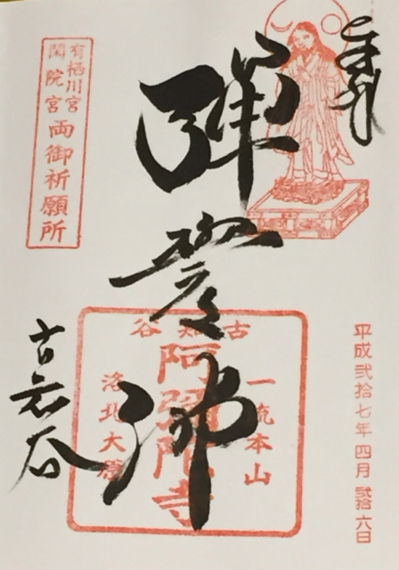 奉拝
平成弐拾七年四月弐拾六日
彈誓佛
古知谷
一流本山
阿彌陀寺
洛北大原
有栖川宮
閑院宮
両御祈願所
古知谷